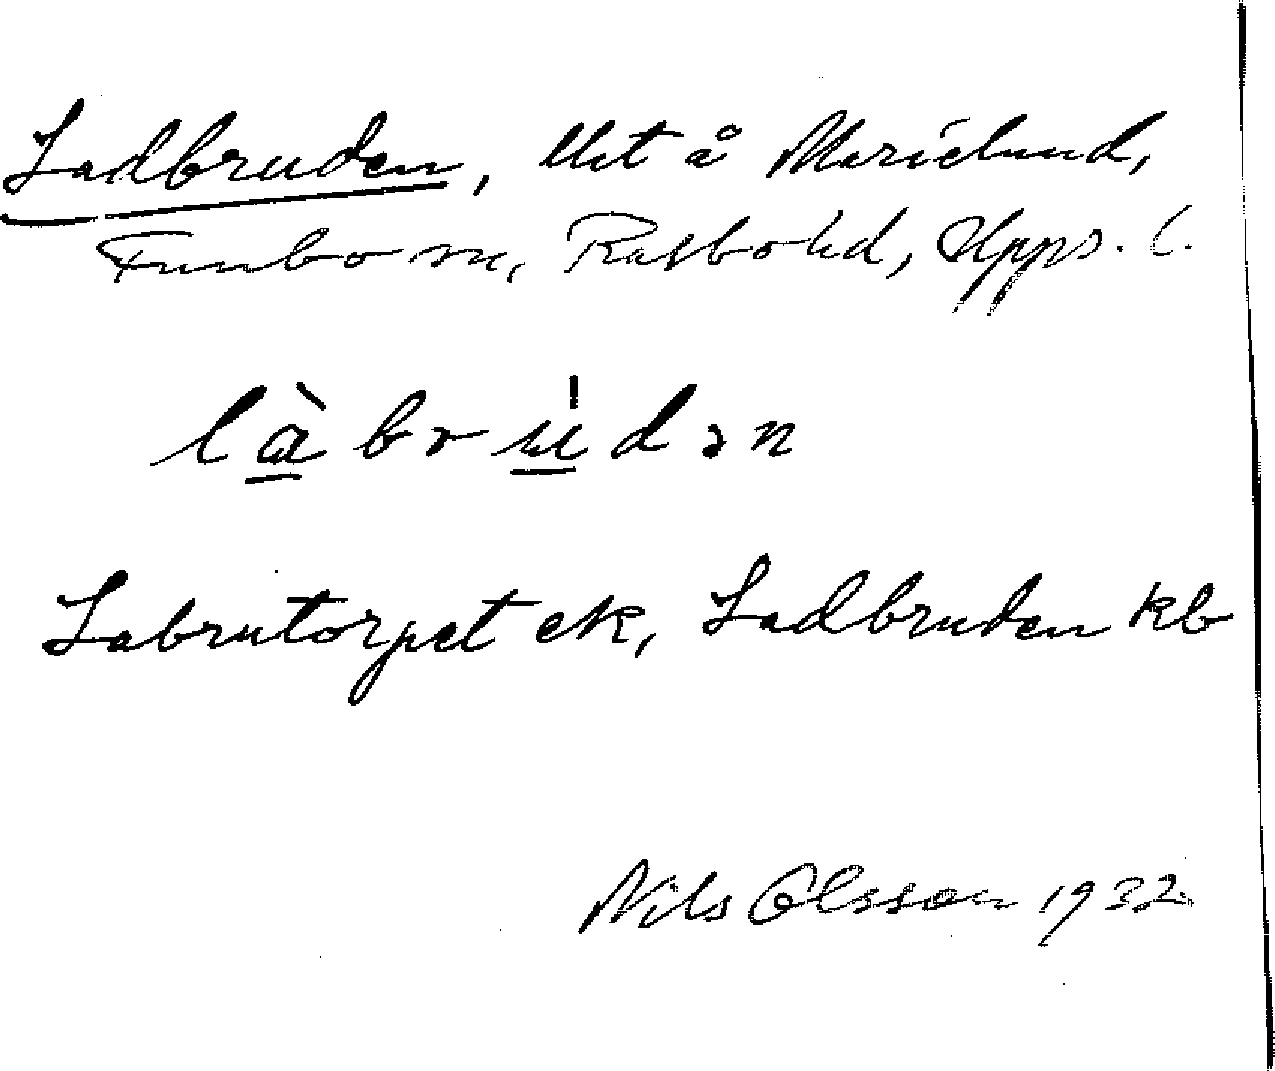 Ladbruden, Utet å Marielund,
Funbo sn, Rasbo hd, Upps. l.
là̱bru̱̍dən
Labrutorpet ek, Ladbruden kb
Nils Olsson 1932